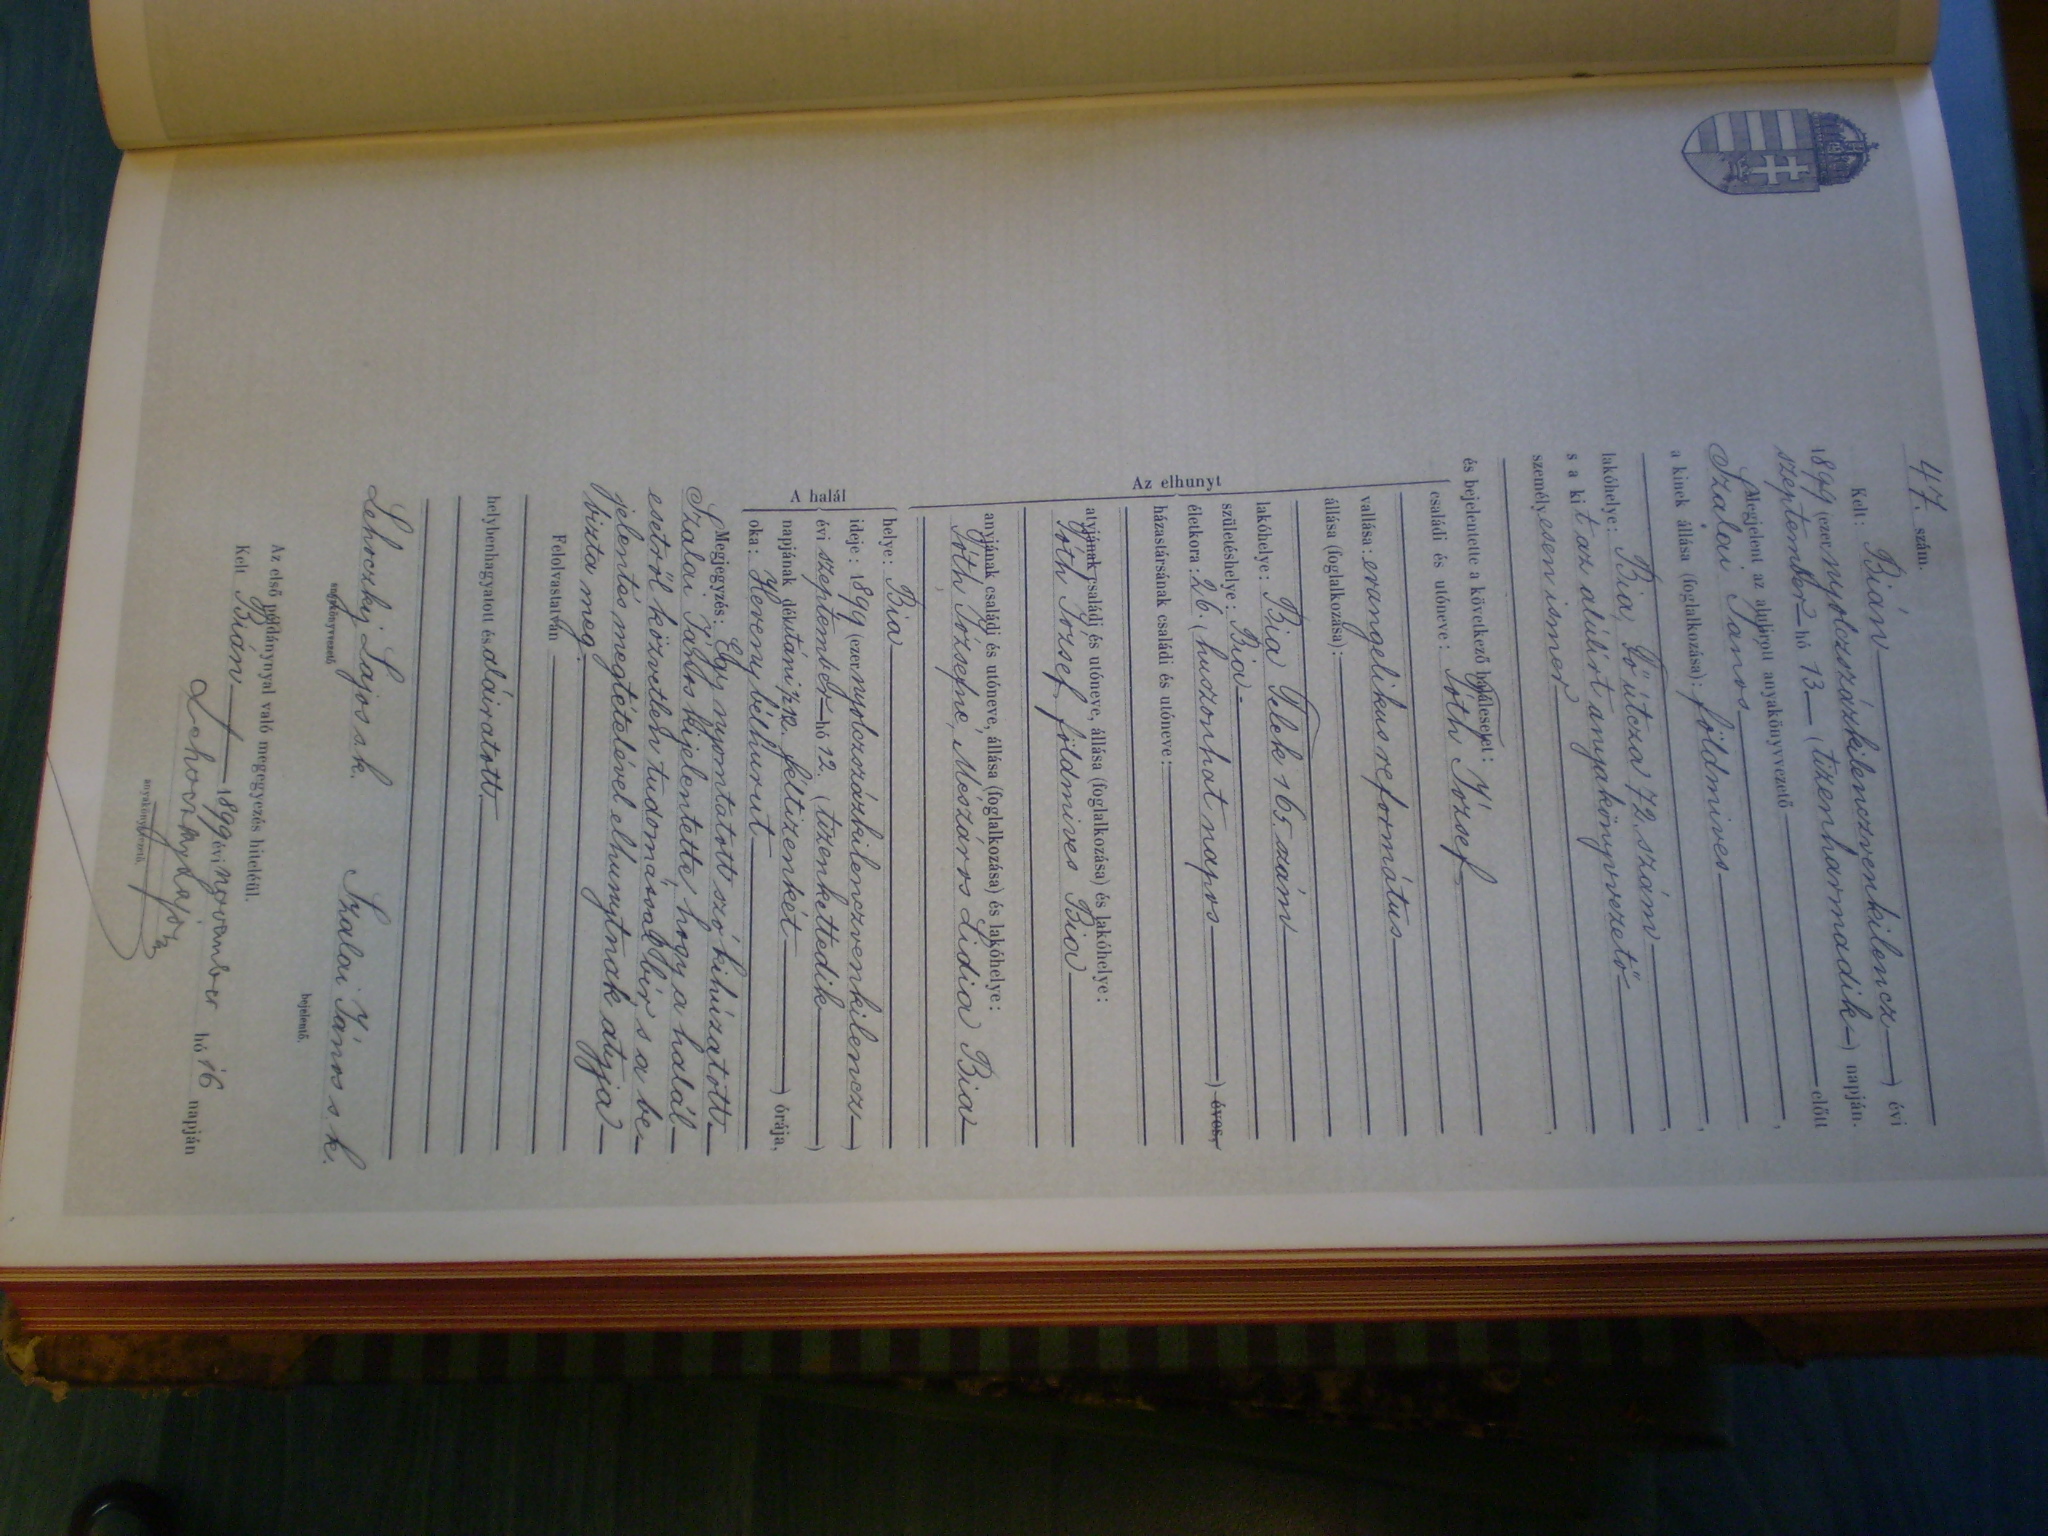 47. szám.
Kelt: Bián
1899 (ezernyolczszázkilenczvenkilencz) évi
szeptember hó 13 (tizenharmadik) napján.
Megjelent az alulírott anyakönyvvezető előtt
Szalai János
a kinek állása (foglalkozása): földmives,
lakóhelye: Bia, Fő útcza 72. szám,
s a kit az alúlírt anyakönyvvezető
személyesen ismer,
és bejelentette a következő halálesetet:
családi és utóneve: Tóth József
vallása: evangelikus református
állása (foglalkozása):
lakóhelye: Bia Telek 165 szám
születéshelye: Bia
életkora: 26 (huszonhat napos) éves,
házastársának családi és utóneve:
Az elhunyt
atyjának családi és utóneve, állása (foglalkozása) és lakóhelye:
Tóth József földmives Bia
anyjának családi és utóneve, állása (foglalkozása) és lakóhelye:
Tóth Józsefné, Mészáros Lidia Bia
A halál
helye: Bia
ideje: 1899 (ezernyolczszázkilenczvenkilencz)
évi szeptember hó 12. (tizenkettedik)
napjának délutáni ½12. féltizenkét) órája,
oka: Heveny bélhurut
Megjegyzés: Egy nyomtatott szó kihúzatott.
Szalai János kijelentette, hogy a halál
esetről közvetlen tudomással bír, s a be
jelentés megtételével elhunytnak atyja
bizta meg.
Felolvastatván
helybenhagyatott és aláiratott.
Lehoczky Lajos s.k.
anyakönyvvezető
Szalai János s k.
bejelentő.
Az első példánnyal való megegyezés hiteléül.
Kelt Bián 1899 évi november hó 16 napján
Lehoczky Lajos
anyakönyvvezető.